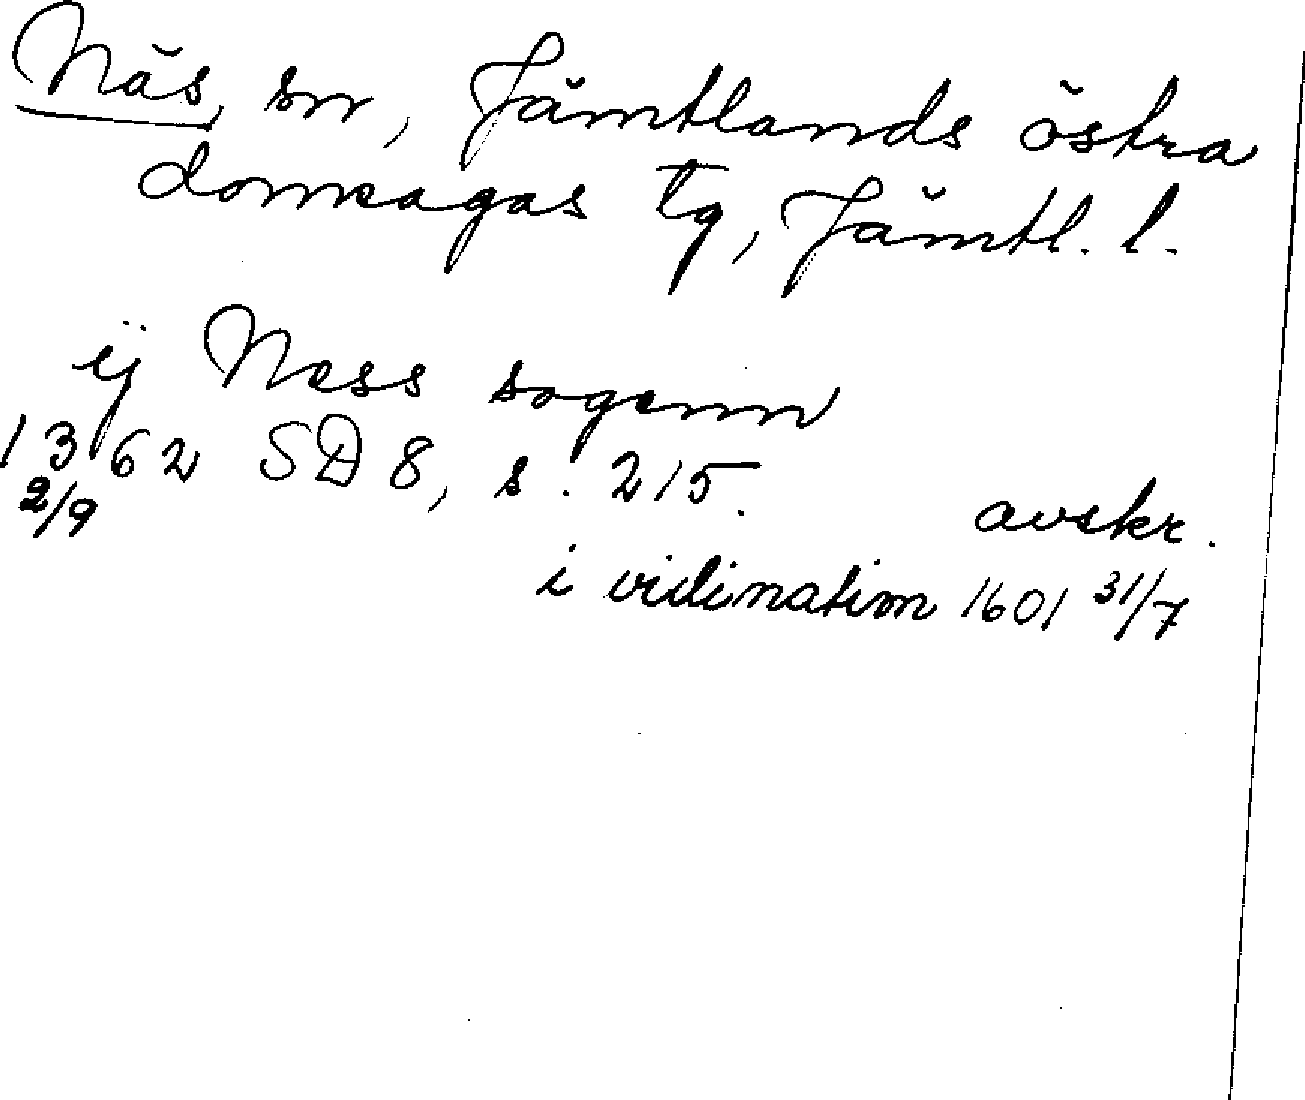 Näs, sn, Jämtlands östra
domsagas tg, Jämtl. l.
ij Ness sogenn
1362 SD 8, s. 215.
2/9 avskr.
i vidimation 1601 31/7